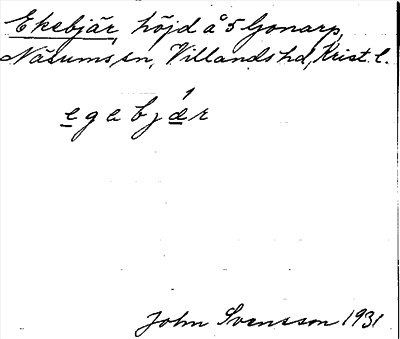 Ekebjär, höjd å 5 Gonarp,
Näsums sn, Villands hd, Krist. l.
egebjǽr
John Svensson 1931